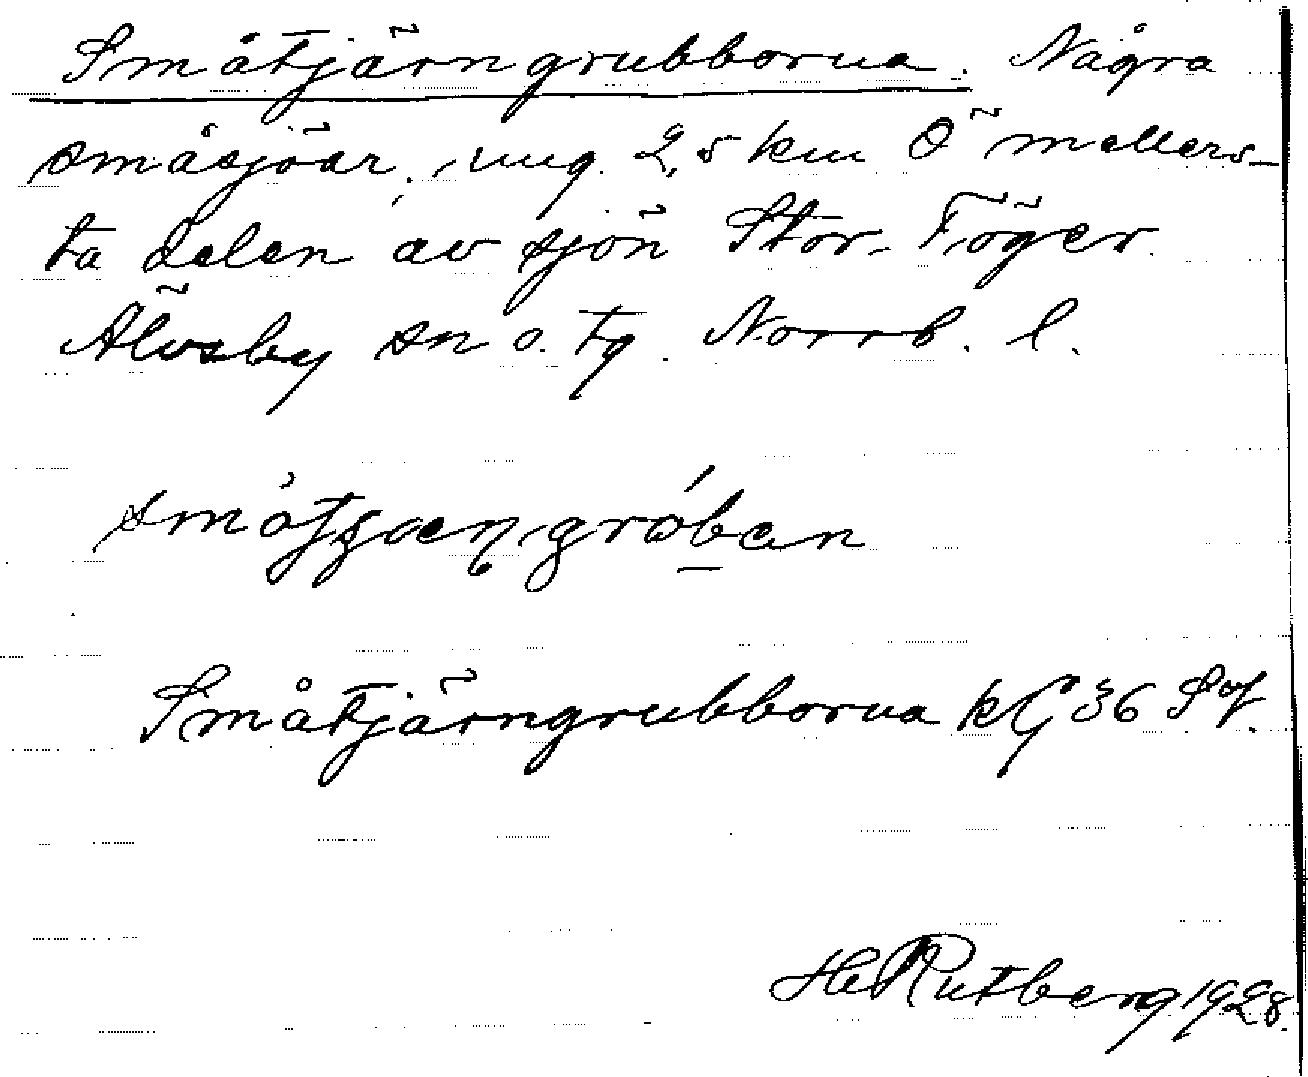 Småtjärngrubborna. Några
småsjöar, ung. 2,5 km Ö mellers-
ta delen av sjön Stor-Töger.
Älvsby sn o. tg. Norrb. l.
Småtjärngrubborna kG 36 SV.
H Rutberg 1928.